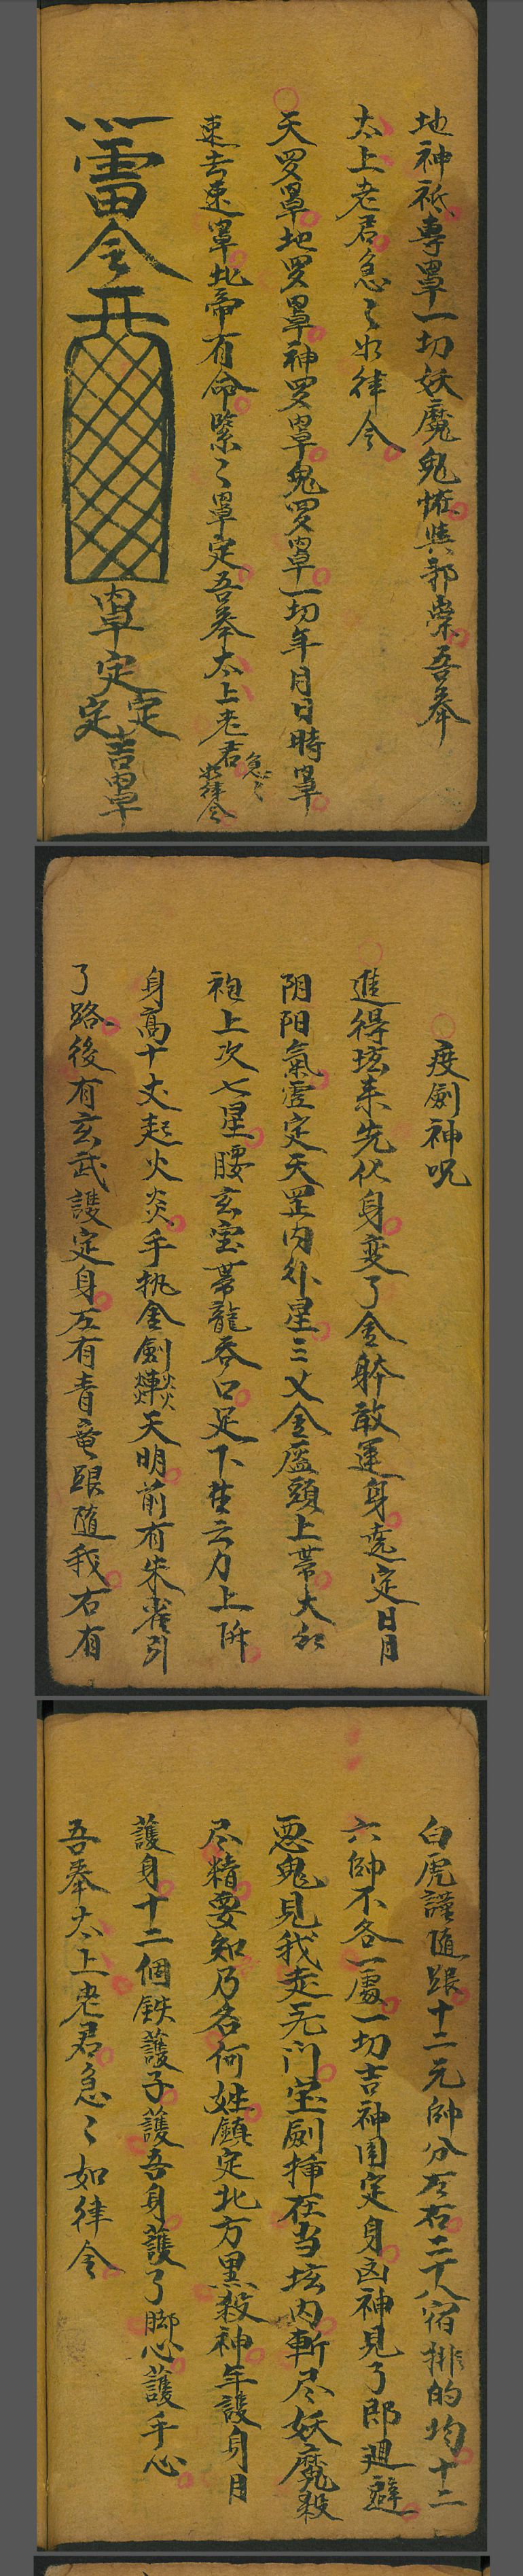 地神祇專罩一切妖魔鬼怪與邪祟吾奉
太上老君急〻如律令
天罗罩地罗罩神罗罩鬼罗罩一切年月日時罩
速去速罩北帝有命緊〻罩定吾奉太上老君急〻如律令
雷令
罩定定定吉罩
度劍神呪
進得坛来先化身变了金躰敢運身遶定日月
阴阳氣雲定天罡内外星三丈金盔頭上带大紅
袍上次七星腰玄宝带龍吞口足下生云刀上所
身高十丈起火炎手执金劍 天明前有朱雀引
了路後有玄武護定身左有青竜跟随我右有
白虎謹随跟十二元帥分左右二十八宿排的均十二
六帥不各一處一切吉神圍定身凶神見了即迴避
恶鬼見我走无门宝劍挿在当坛内斬尽妖魔殺
尽精要知乃名何姓鎮定北方黑殺神年護身月
護身十二個鉄護子護吾身護了脚心護手心
吾奉太上老君急〻如律令